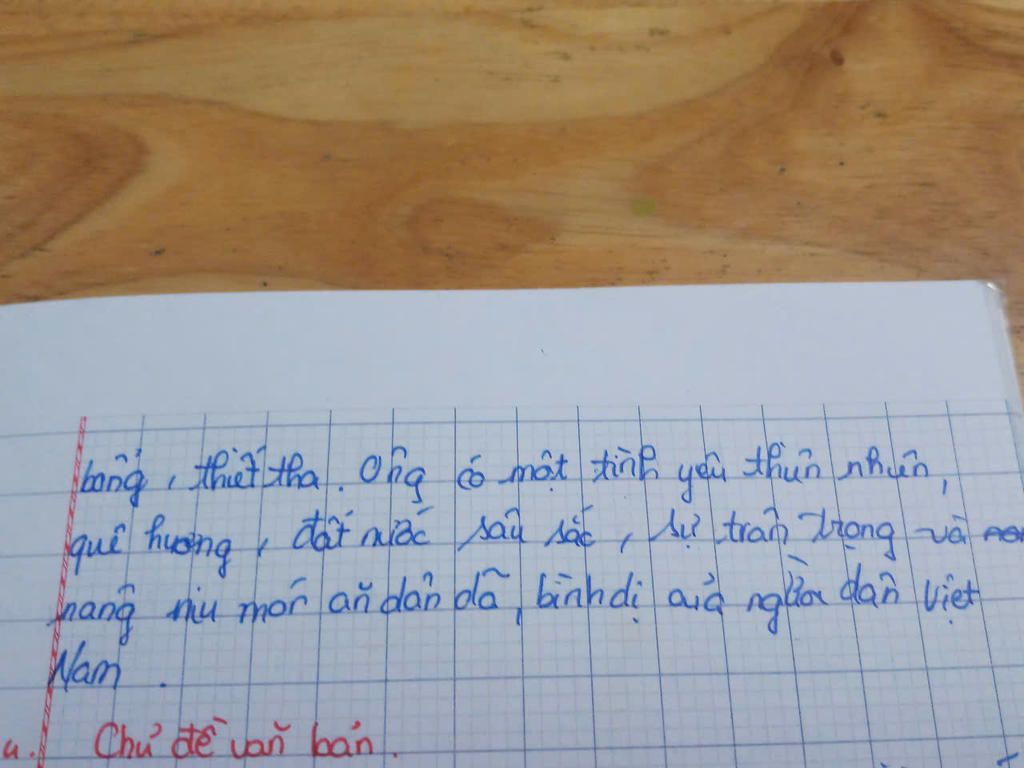 bổng, thiết tha. Ông có một tình yêu thuần nhuần,
quê hương, đất nước sâu sắc, sự trân trọng và
nâng niu món ăn dân dã, bình dị của người dân Việt
Nam.
4. Chủ đề văn bản.